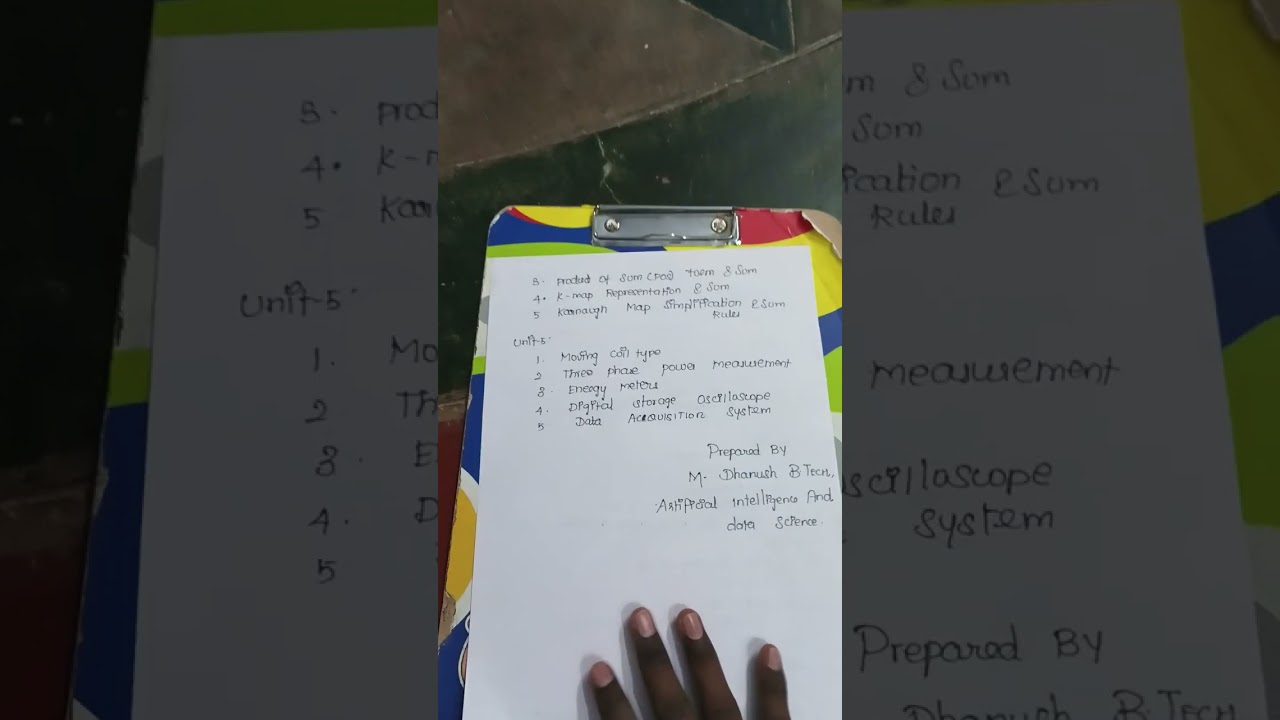 3. Product of Sum (POS) form & Sum
4. K-map Representation & Sum
5 Karnaugh Map Simplification & Sum
Rules
Unit-5:
1. Moving coil type
2 Three phase power measurement
3. Energy meters
4. Digital storage oscillascope
5 Data Acequisition System
Prepared By
M. Dhanush B.TECH.,
Artificial Intelligence And
data Science.